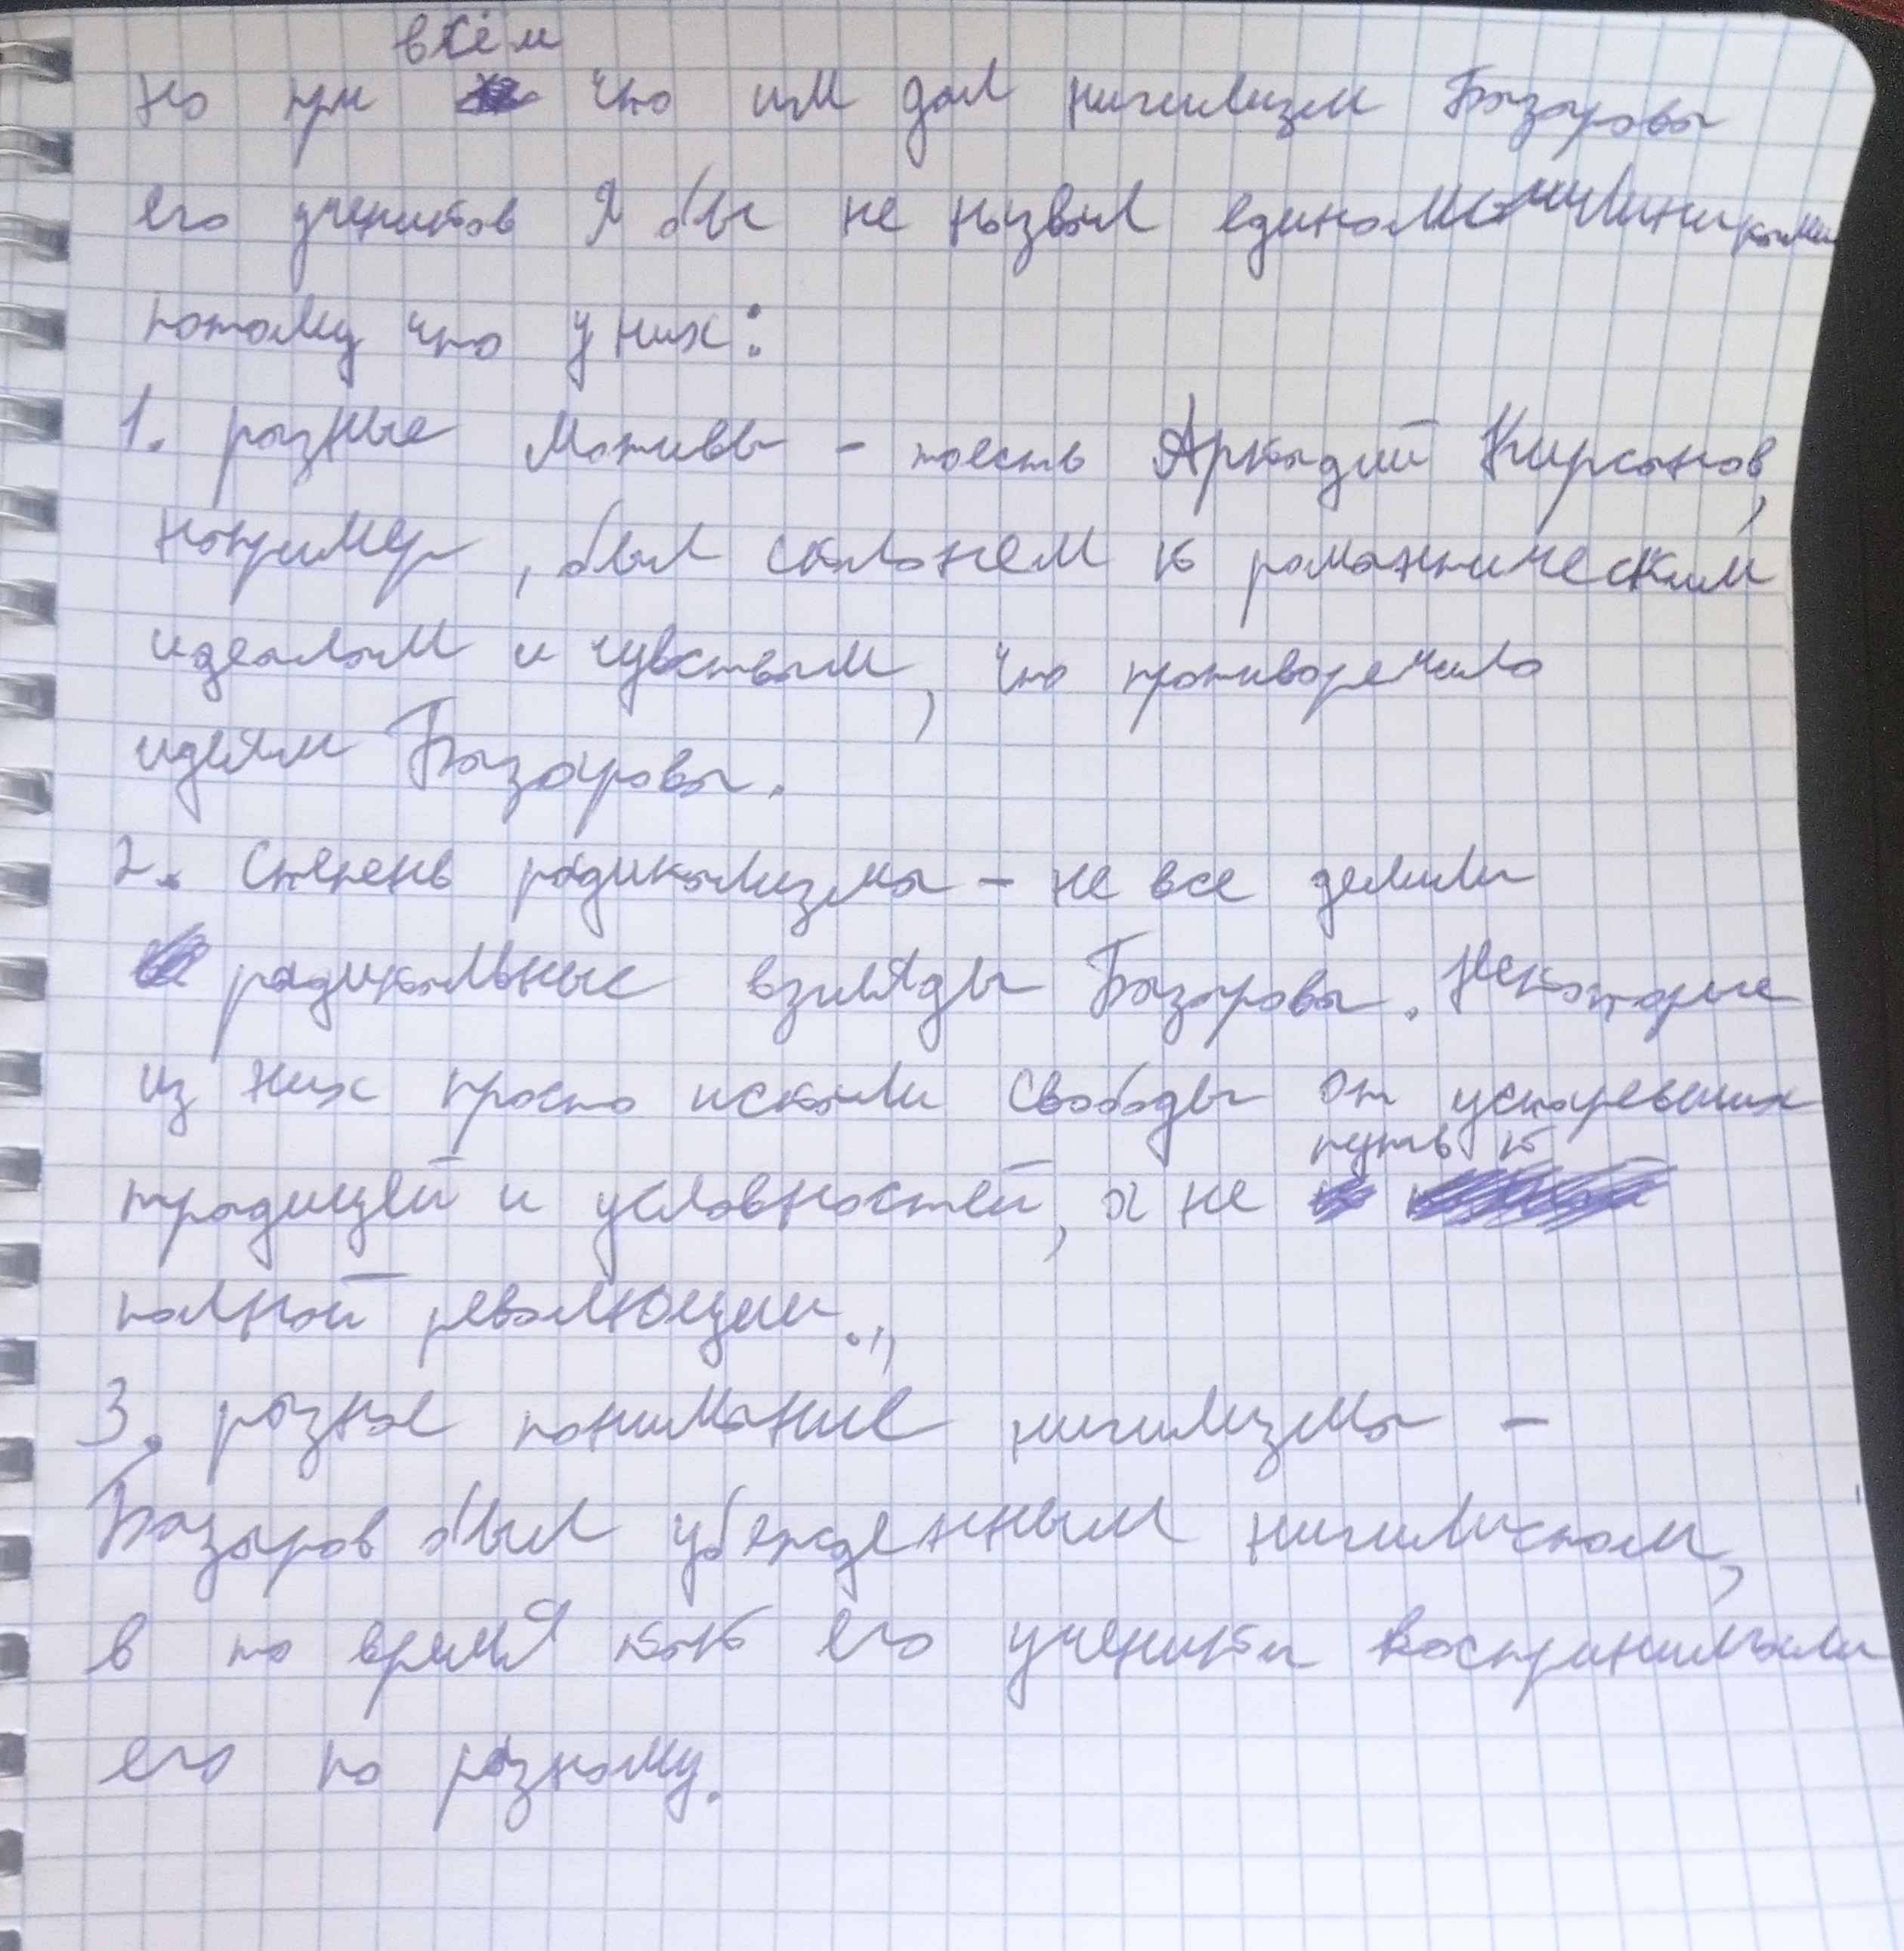 всем
но при что им дал нигилизм Базарова
его учеников я бы не назвал единомышленниками
потому что у них:
1. разные мотивы - тоесть Аркадий Кирсанов,
например, был склонен к романтическим
идеалам и чувствам, что противоречило
идеям Базарова.
2. Степень радикализма - не все делили
радикальные взгляды Базарова. Некоторые
из них просто искали свободы от устаревших
путь к
традиций и условностей, а не
полной революции.,,
3. разное понимание нигилизма -
Базаров был убежденным нигилистом,
в то время как его ученики воспринимали
его по разному.